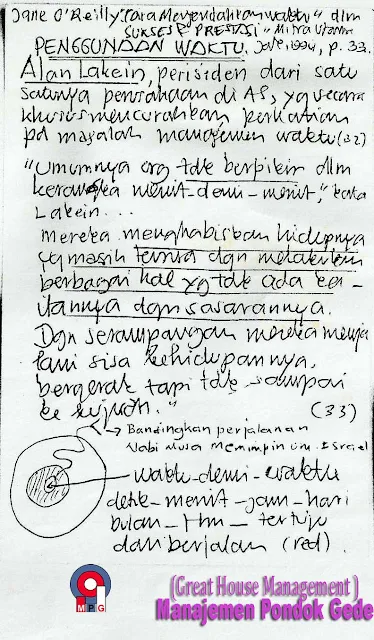 Jane O'Reilly, "Cara Mengendalikan waktu" dlm
SUKSES & PRESTASI" Mitra Utama
PENGGUNAAN WAKTU. Jak, 1994, p. 33.
Alan Lakein, perisiden dari satu
satunya perusahaan di AS, yg secara
khusus mencurahkan perhatian
pd masalah manajemen waktu (32)
"Umumnya org tdk berpikir dlm
kerangka menit-demi-menit," kata
Lakein...
mereka menghabiskan hidupnya
yg masih tersisa dgn melakukan
berbagai hal yg tdk ada kai-
tannya dgn sasarannya.
Dgn serampangan mereka menja
lani sisa kehidupannya,
bergerak tapi tdk sampai
ke tujuan."
(33)
Bandingkan perjalanan
Nabi Musa memimpin um. Israel
waktu-demi-waktu
detik-menit-jam-hari
bulan-thn-tertuju
dan berjalan (red).
MPG
(Great House Management)
Manajemen Pondok Gede